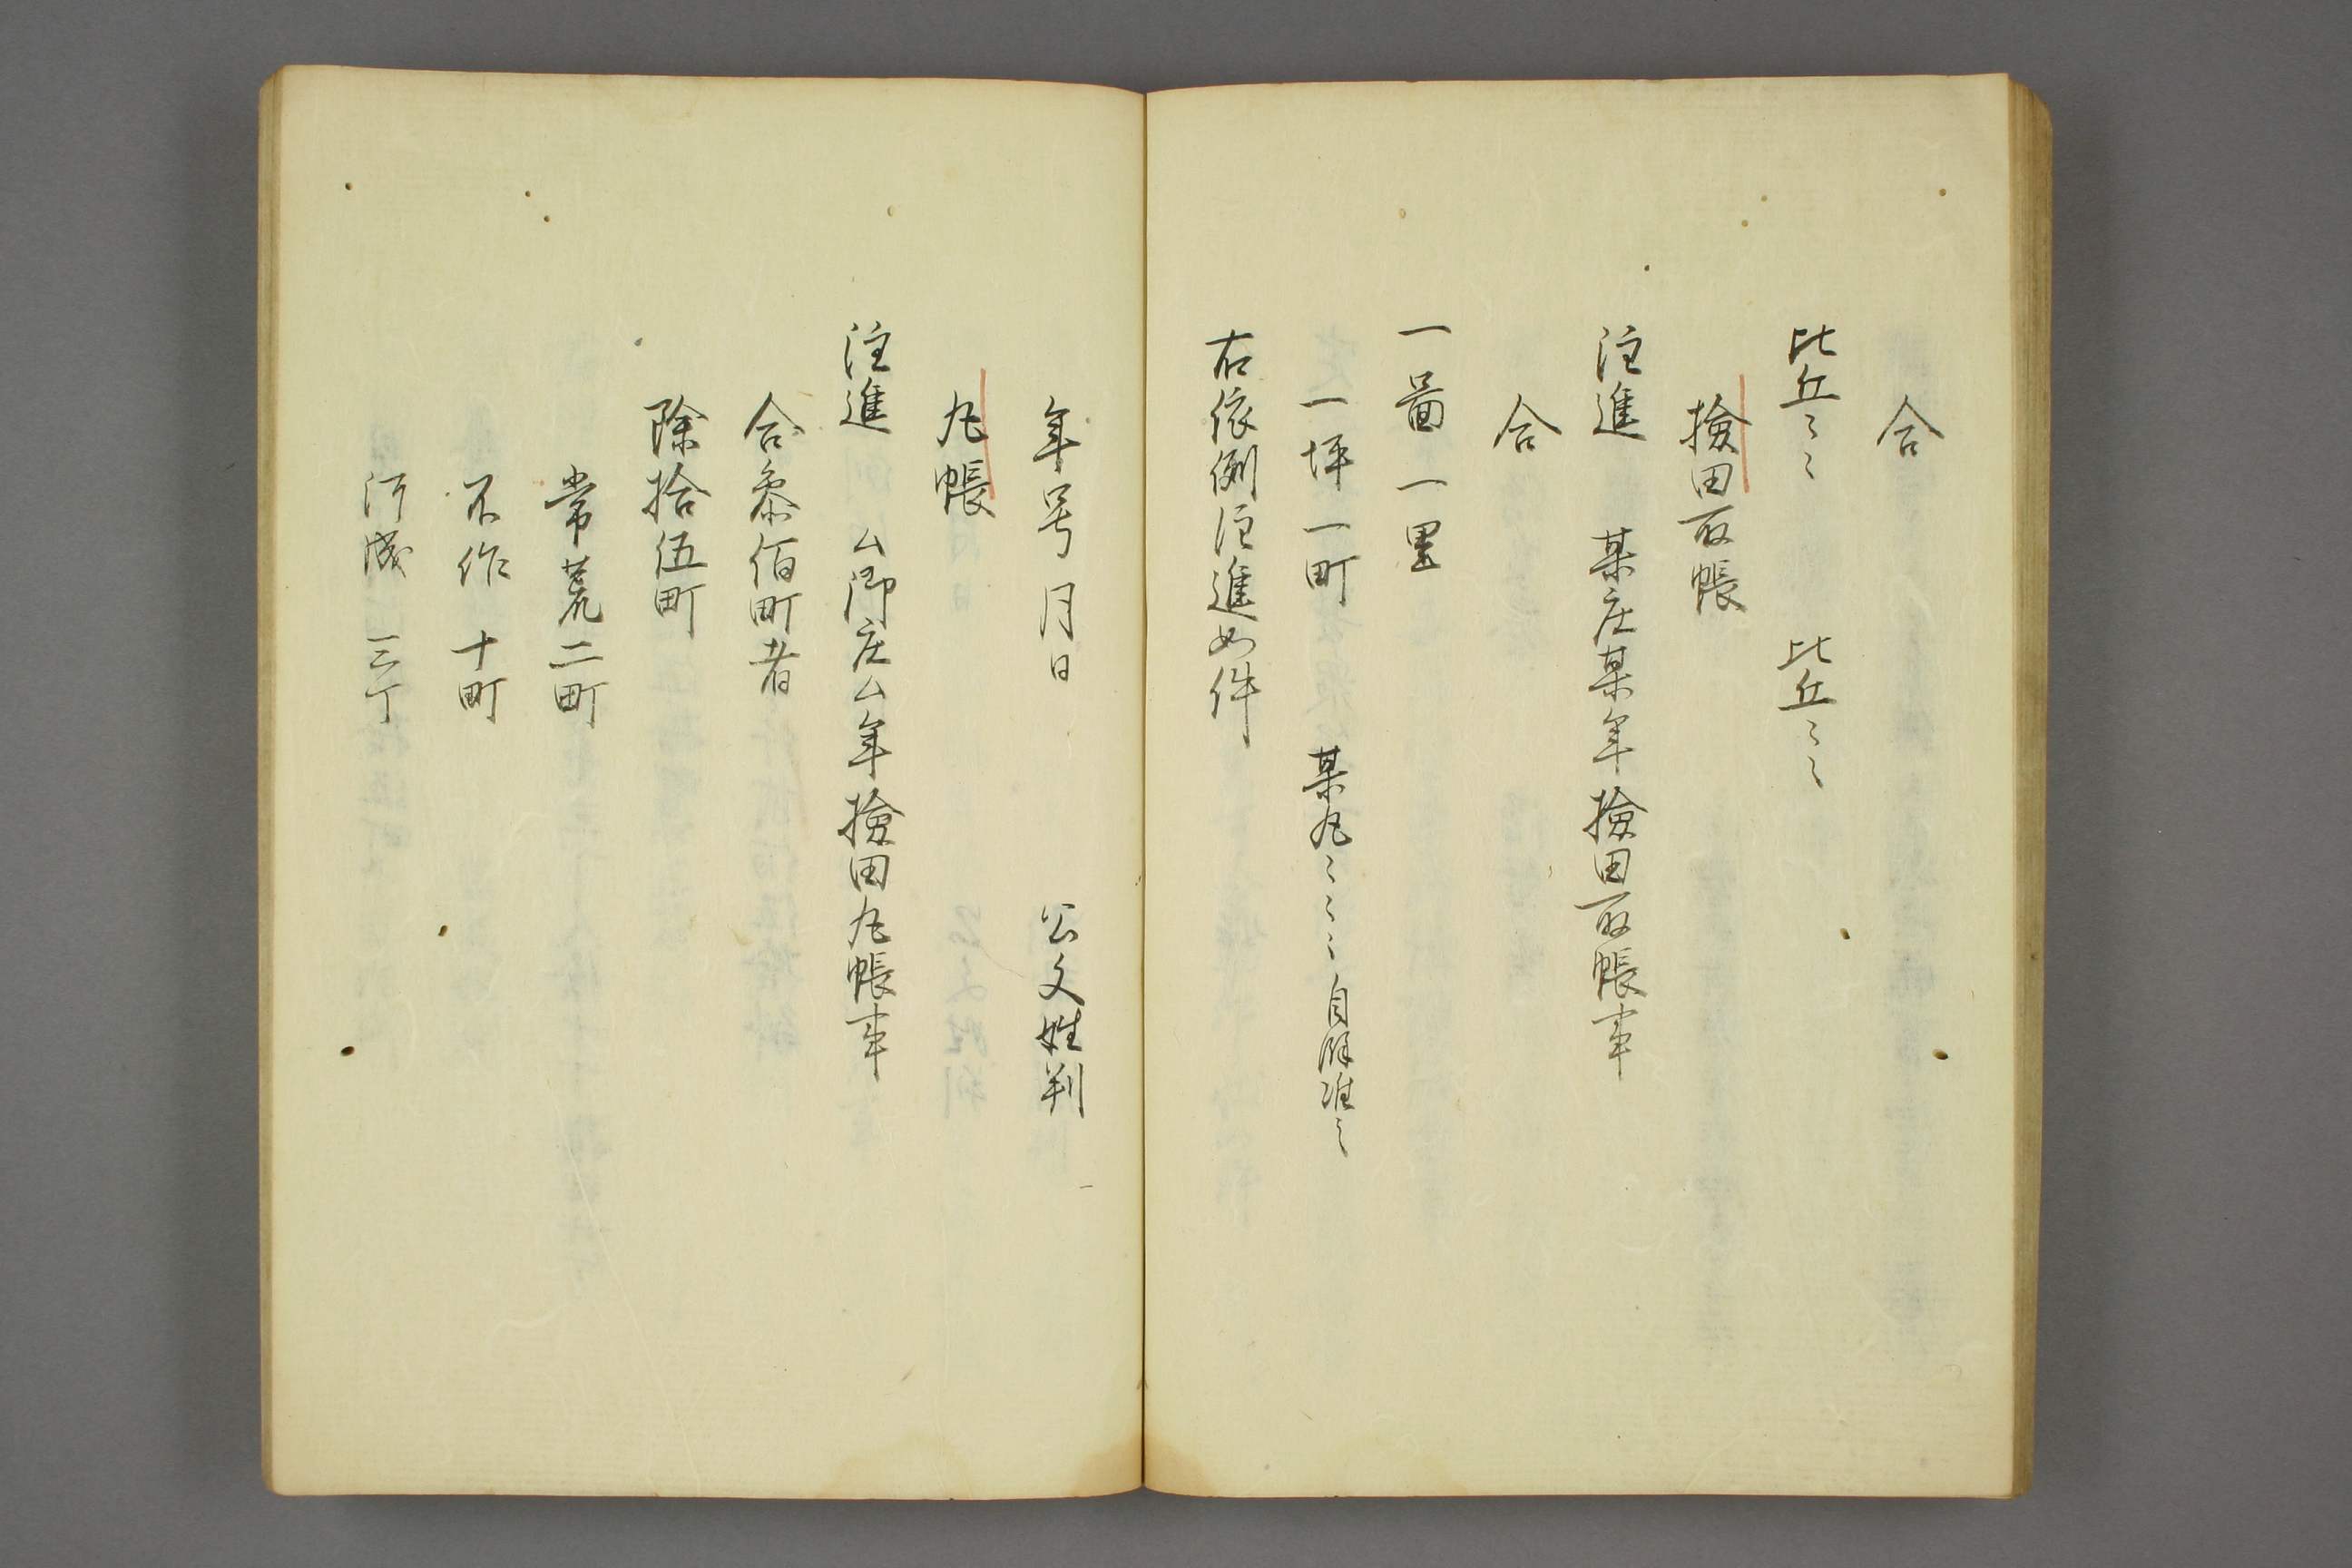 合
比丘〻〻　比丘〻〻
撿田取帳
注進　某庄某年撿田取帳事
合
一啚一里
一坪一町　某丸〻〻〻自餘准之
右依例注進如件
年号月日　公文姓判
丸帳
注進　ム御庄ム年撿田丸帳事
合参佰町者
除拾伍町
常荒二町
不作　十町
河成　三丁